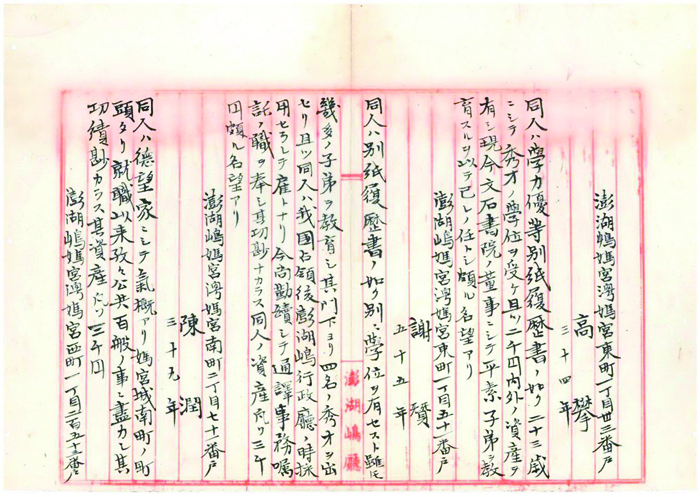 澎湖嶋媽宮湾媽宮東町一丁目廿三番戸
高攀
三十四年
同人ハ學力優等別紙履歴書ノ如ク二十三歳
ニシテ秀才ノ學位ヲ受ケ且ツ二千円内外ノ資産ヲ
有シ現今文石書院ノ董事ニシテ平素子弟ヲ教
育スルヲ以テ己レノ任トシ頗ル名望アリ
澎湖嶋媽宮湾媽宮東町一丁目五十番戸
謝賛
五十五年
同人ハ別紙履歴書ノ如ク別ニ學位ヲ有セスト雖モ
幾多ノ子弟ヲ教育シ其門下ヨリ四名ノ秀才ヲ出
セリ且ツ同人ハ我国占領後澎湖嶋行政廳ノ時採
用セラレテ雇トナリ今尚勤續シテ通譯事務嘱
託ノ職ヲ奉シ其功尠ナカラス同人ノ資産凡ソ三千
円頗ル名望アリ
澎湖嶋媽宮湾媽宮南町二丁目七十一番戸
陳潤
三十九年
同人ハ德望家ニシテ氣概アリ媽宮城南町ノ町
頭タリ就職以来孜々公共百般ノ事ニ盡力シ其
功績尠カラス其資産凡ソ三千円
澎湖嶋媽宮湾媽宮西町一丁目二百五十三番戸
澎湖嶋廳